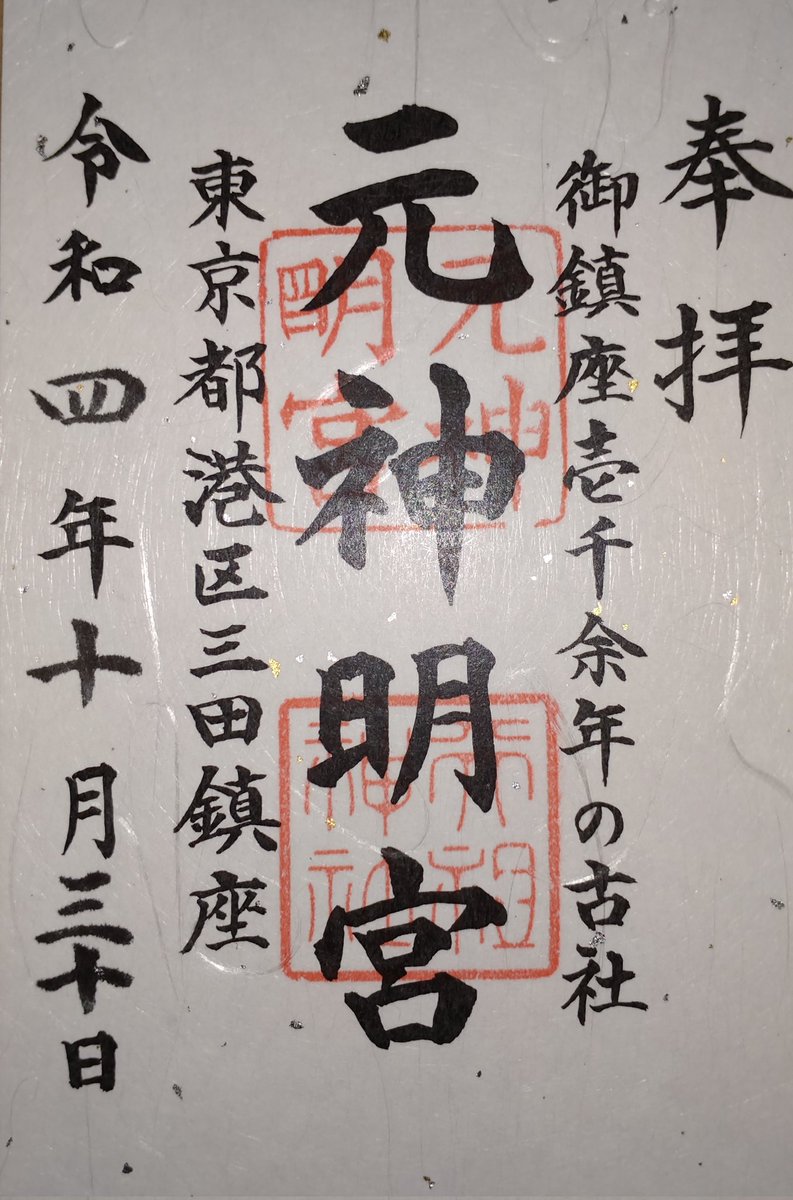 奉拝
御鎮座壱千余年の古社
元神明宮
元神明宮
天祖神社
東京都港区三田鎮座
令和四年十月三十日